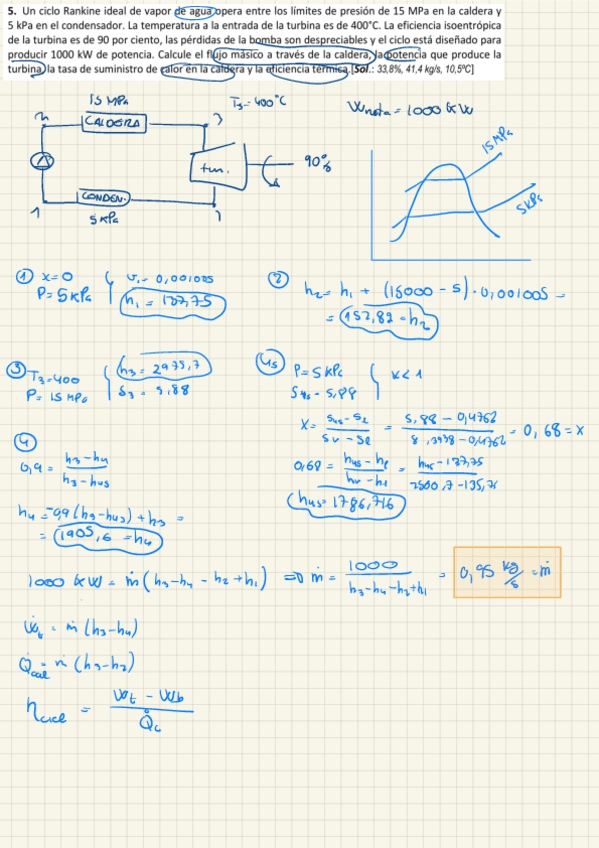 5. Un ciclo Rankine ideal de vapor de agua opera entre los límites de presión de 15 MPa en la caldera y
5 kPa en el condensador. La temperatura a la entrada de la turbina es de 400°C. La eficiencia isoentrópica
de la turbina es de 90 por ciento, las pérdidas de la bomba son despreciables y el ciclo está diseñado para
producir 1000 kW de potencia. Calcule el flujo másico a través de la caldera, la potencia que produce la
turbina, la tasa de suministro de calor en la caldera y la eficiencia térmica.[Sol.: 33,8%, 41,4 kg/s, 10,5ºC]
15 MPa
T3=400°C
Wneta = 1000 kW
2
CALDERA
3
tur.
90%
CONDEN.
1
5 kPa
15 MPa
5 kPa
① x=0
P=5kPa
v1=0,001005
h1 = 137,75
② h2 = h1 + (15000 - 5) · 0,001005 =
= 152,82 = h2
③ T3=400
P= 15 MPa
h3= 2975,7
s3 = 5,88
4s P=5kPa
S4s = 5,88
x<1
x = (s4s - sl)/(sv - sl) = (5,88 - 0,4762)/(8,3938 - 0,4762) = 0,68 = x
0,68 = (h4s - hl)/(hv - hl) = (h4s - 137,75)/(2560,7 - 135,75)
h4s = 1786,716
④
0,9 = (h3-h4)/(h3-h4s)
h4 = -0,9 (h3-h4s) + h3 =
= 1905,6 = h4
1000 kW = ṁ (h3-h4 - h2 + h1) => ṁ = 1000/(h3-h4-h2+h1) = 0,95 kg/s = ṁ
Ẇt = ṁ (h3-h4)
Q̇cal = ṁ (h3-h2)
ηciclo = (Wt - Wb)/Q̇c